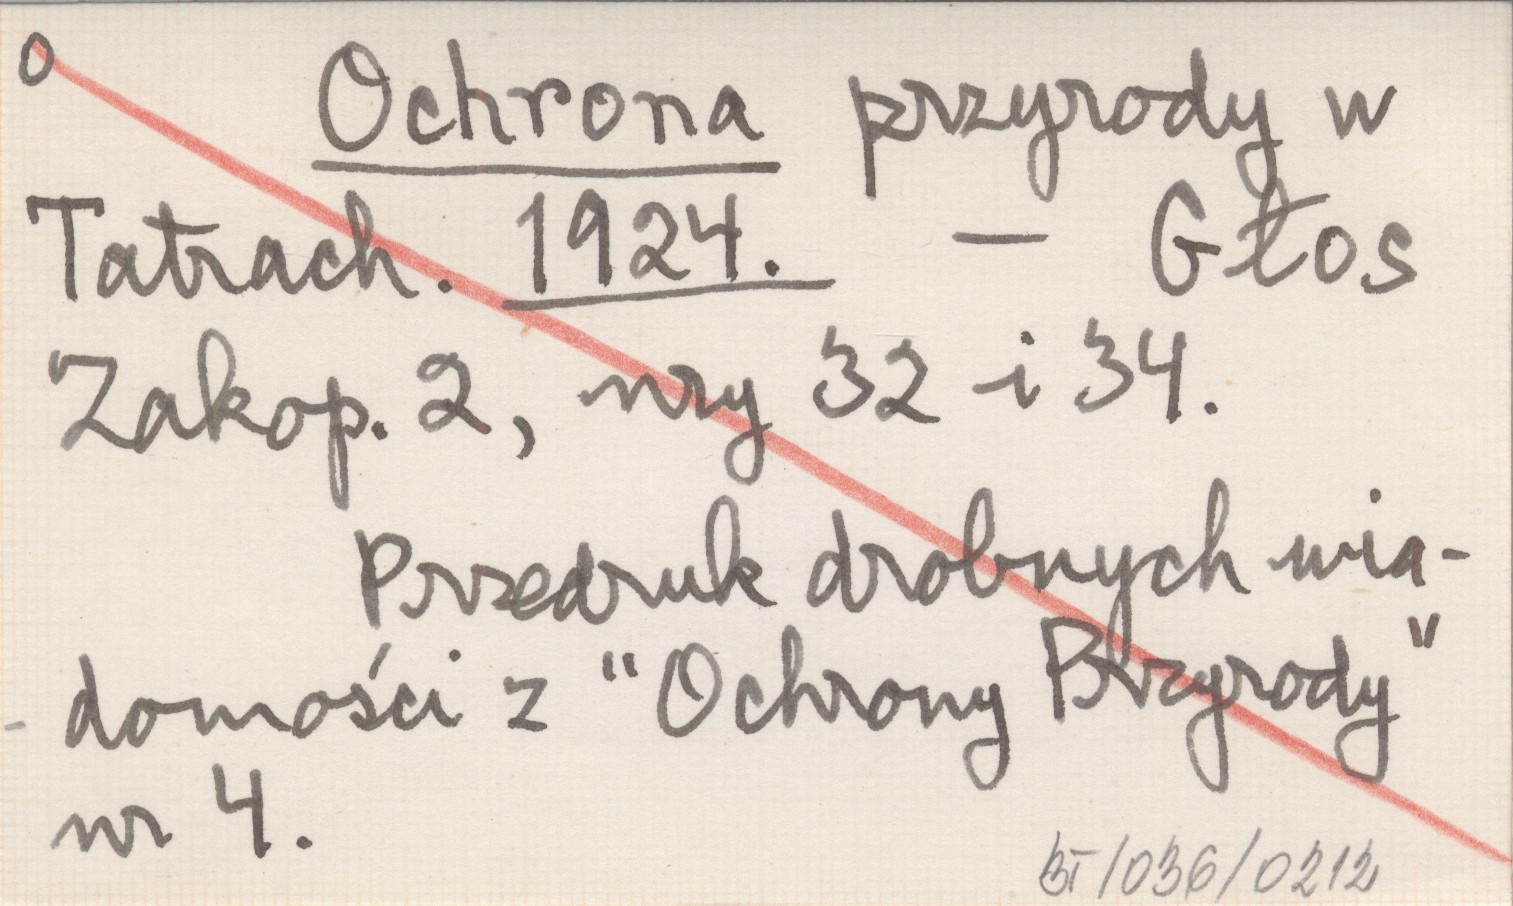 O
Ochrona przyrody w
Tatrach. 1924. — Głos
Zakop. 2, nry 32 i 34.
Przedruk drobnych wia-
domości z "Ochrony Przyrody"
nr 4.
BT/036/0212